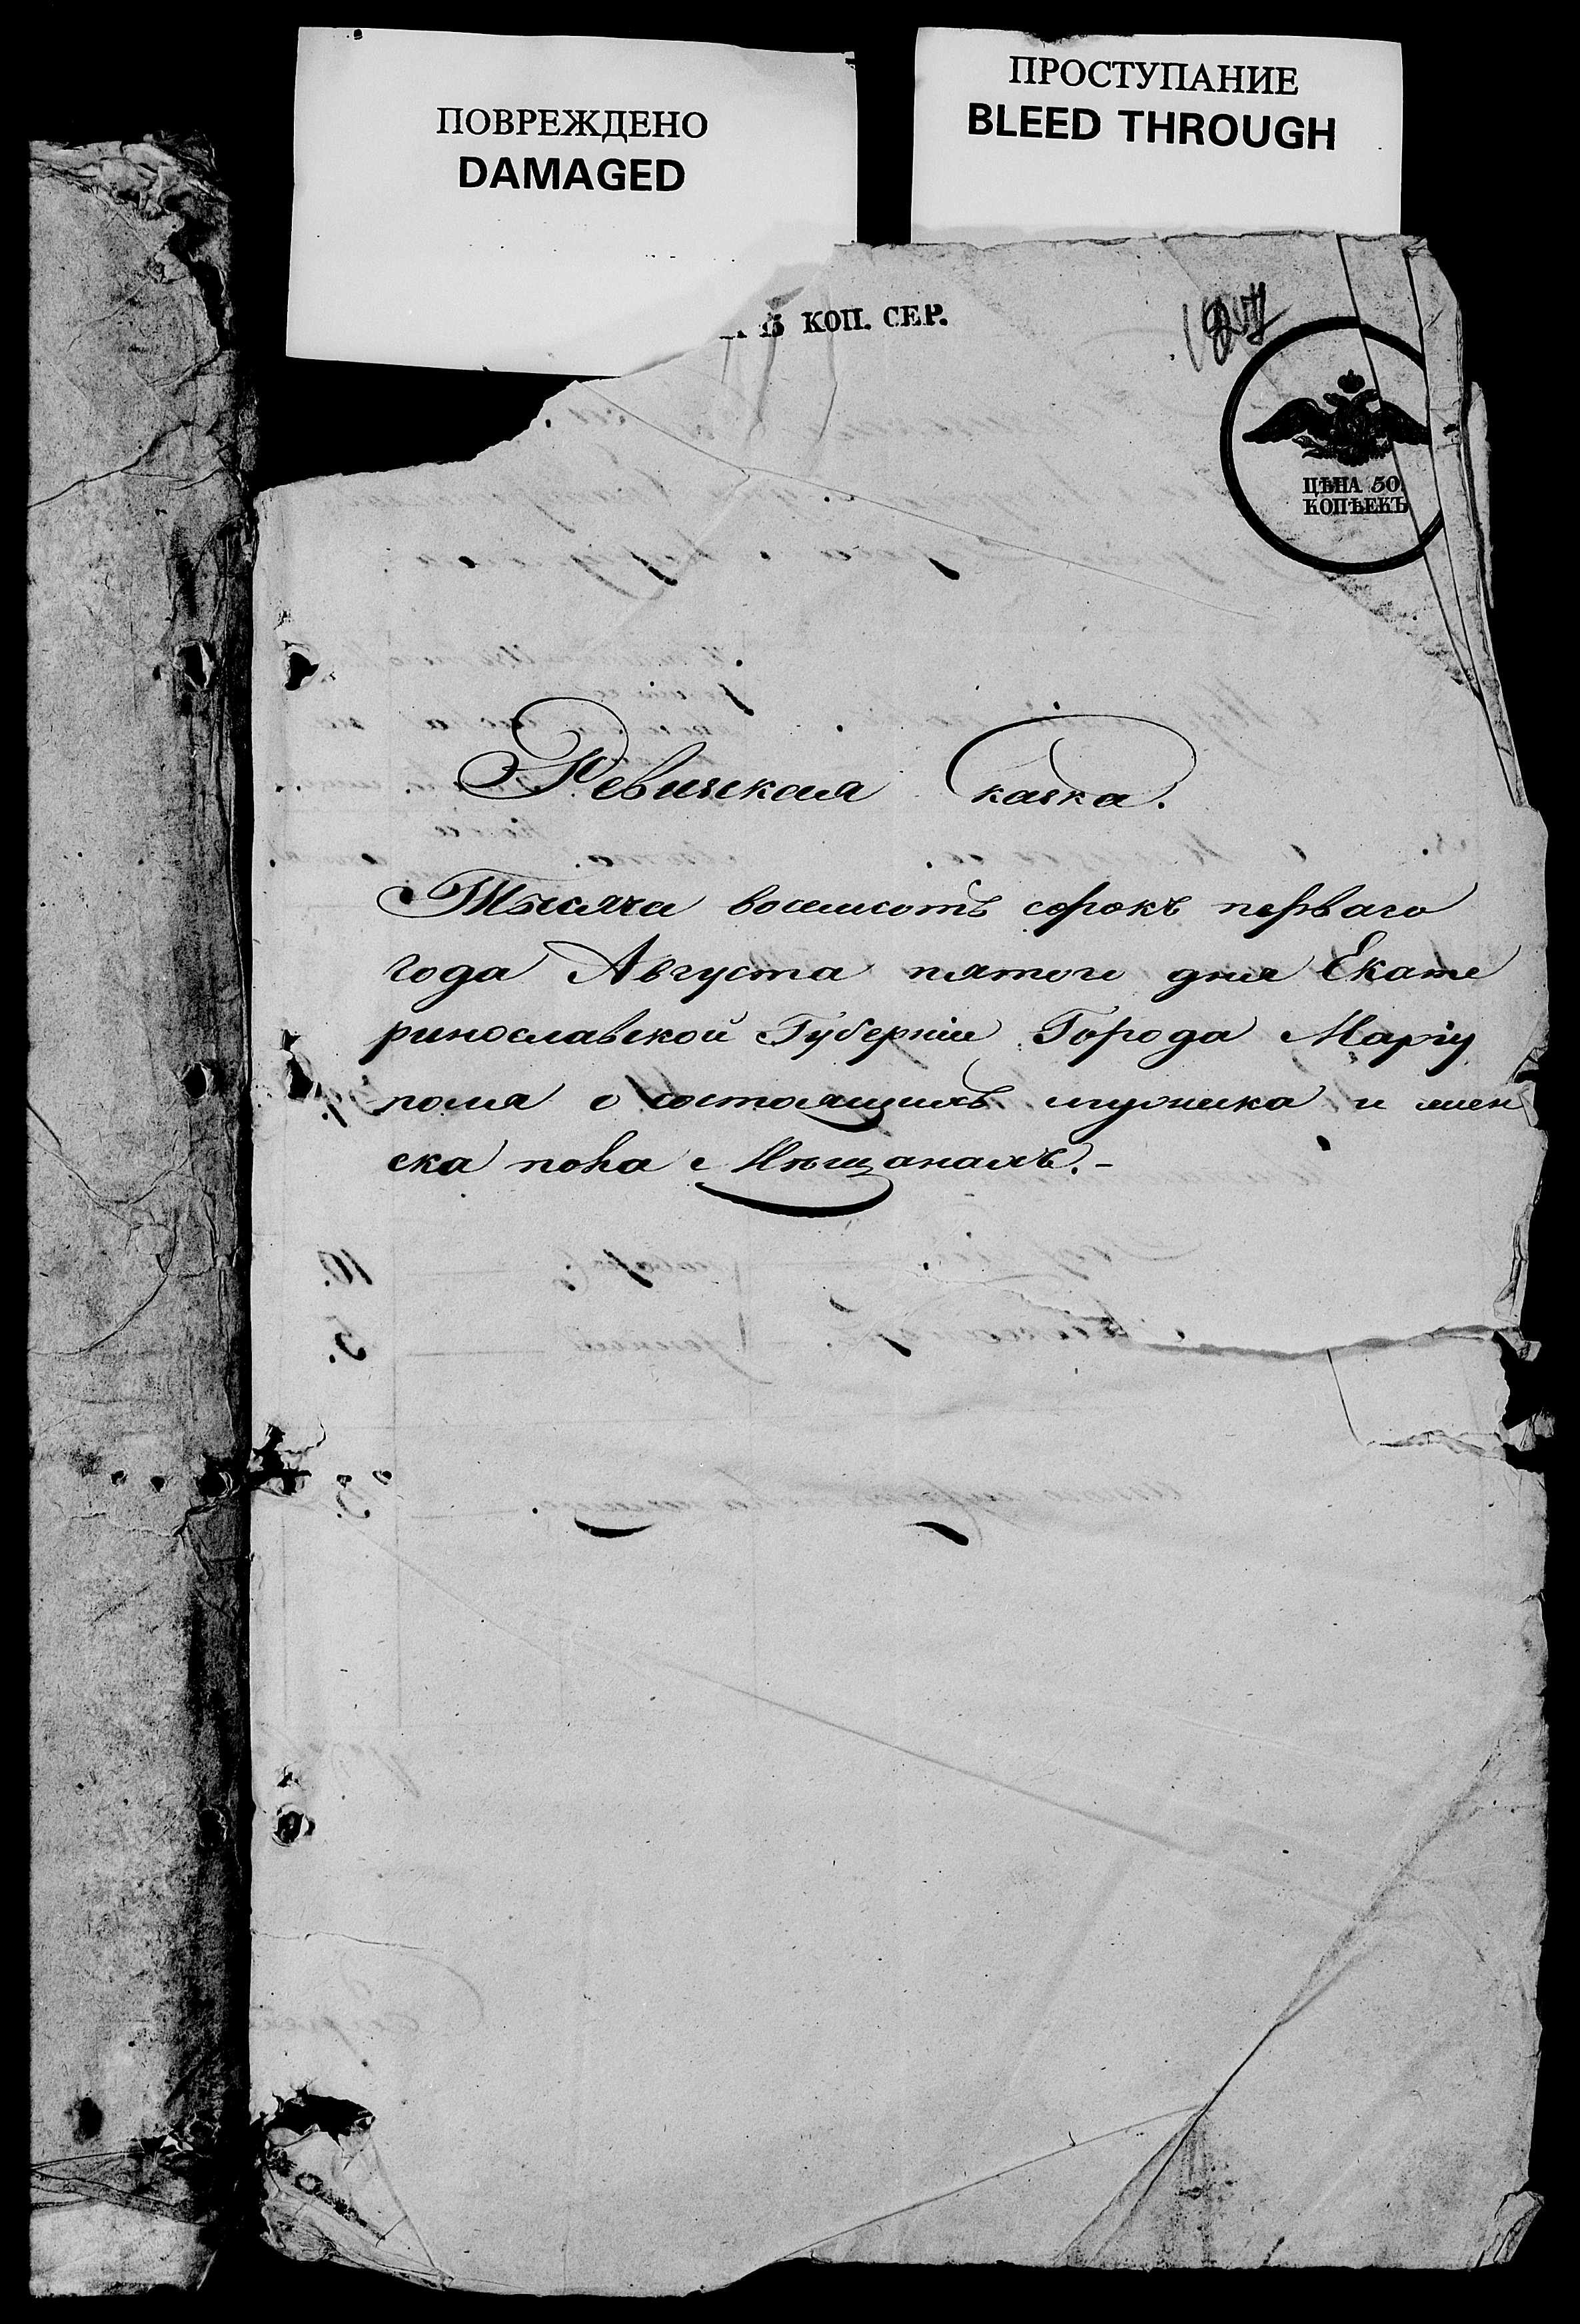 ПОВРЕЖДЕНО
DAMAGED
ПРОСТУПАНИЕ
BLEED THROUGH
КОП. СЕР.
ЦѢНА 50
КОПѢЕКЪ
Ревизская Сказка.
Тысяча восемсотъ сорокъ перваго
года Августа пятого дня Екате
ринославской Губерніи Города Маріу
поля о состоящихъ мужеска и жен
ска пола Мѣщанахъ.-